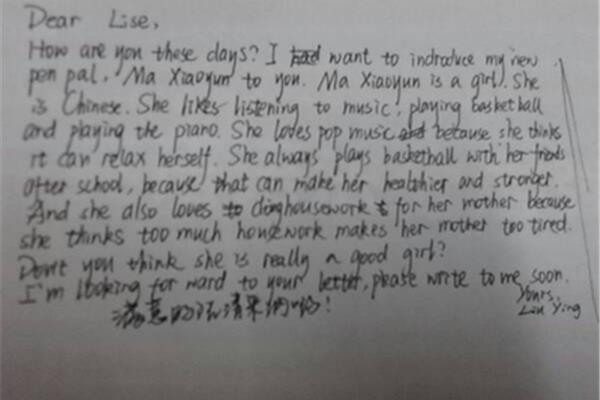 Dear Lise,
How are you these days? I want to indroduce my new
pen pal, Ma Xiaoyun to you. Ma Xiaoyun is a girl. She
is Chinese. She likes listening to music, playing basketball
and playing the piano. She loves pop music because she thinks
it can relax herself. She always plays basketball with her friends
after school, because that can make her healthier and stronger.
And she also loves doing housework for her mother because
she thinks too much housework makes her mother too tired.
Don't you think she is really a good girl?
I'm looking for ward to your letter, please write to me soon.
Yours,
Lin Ying
满意的话请采纳哟!